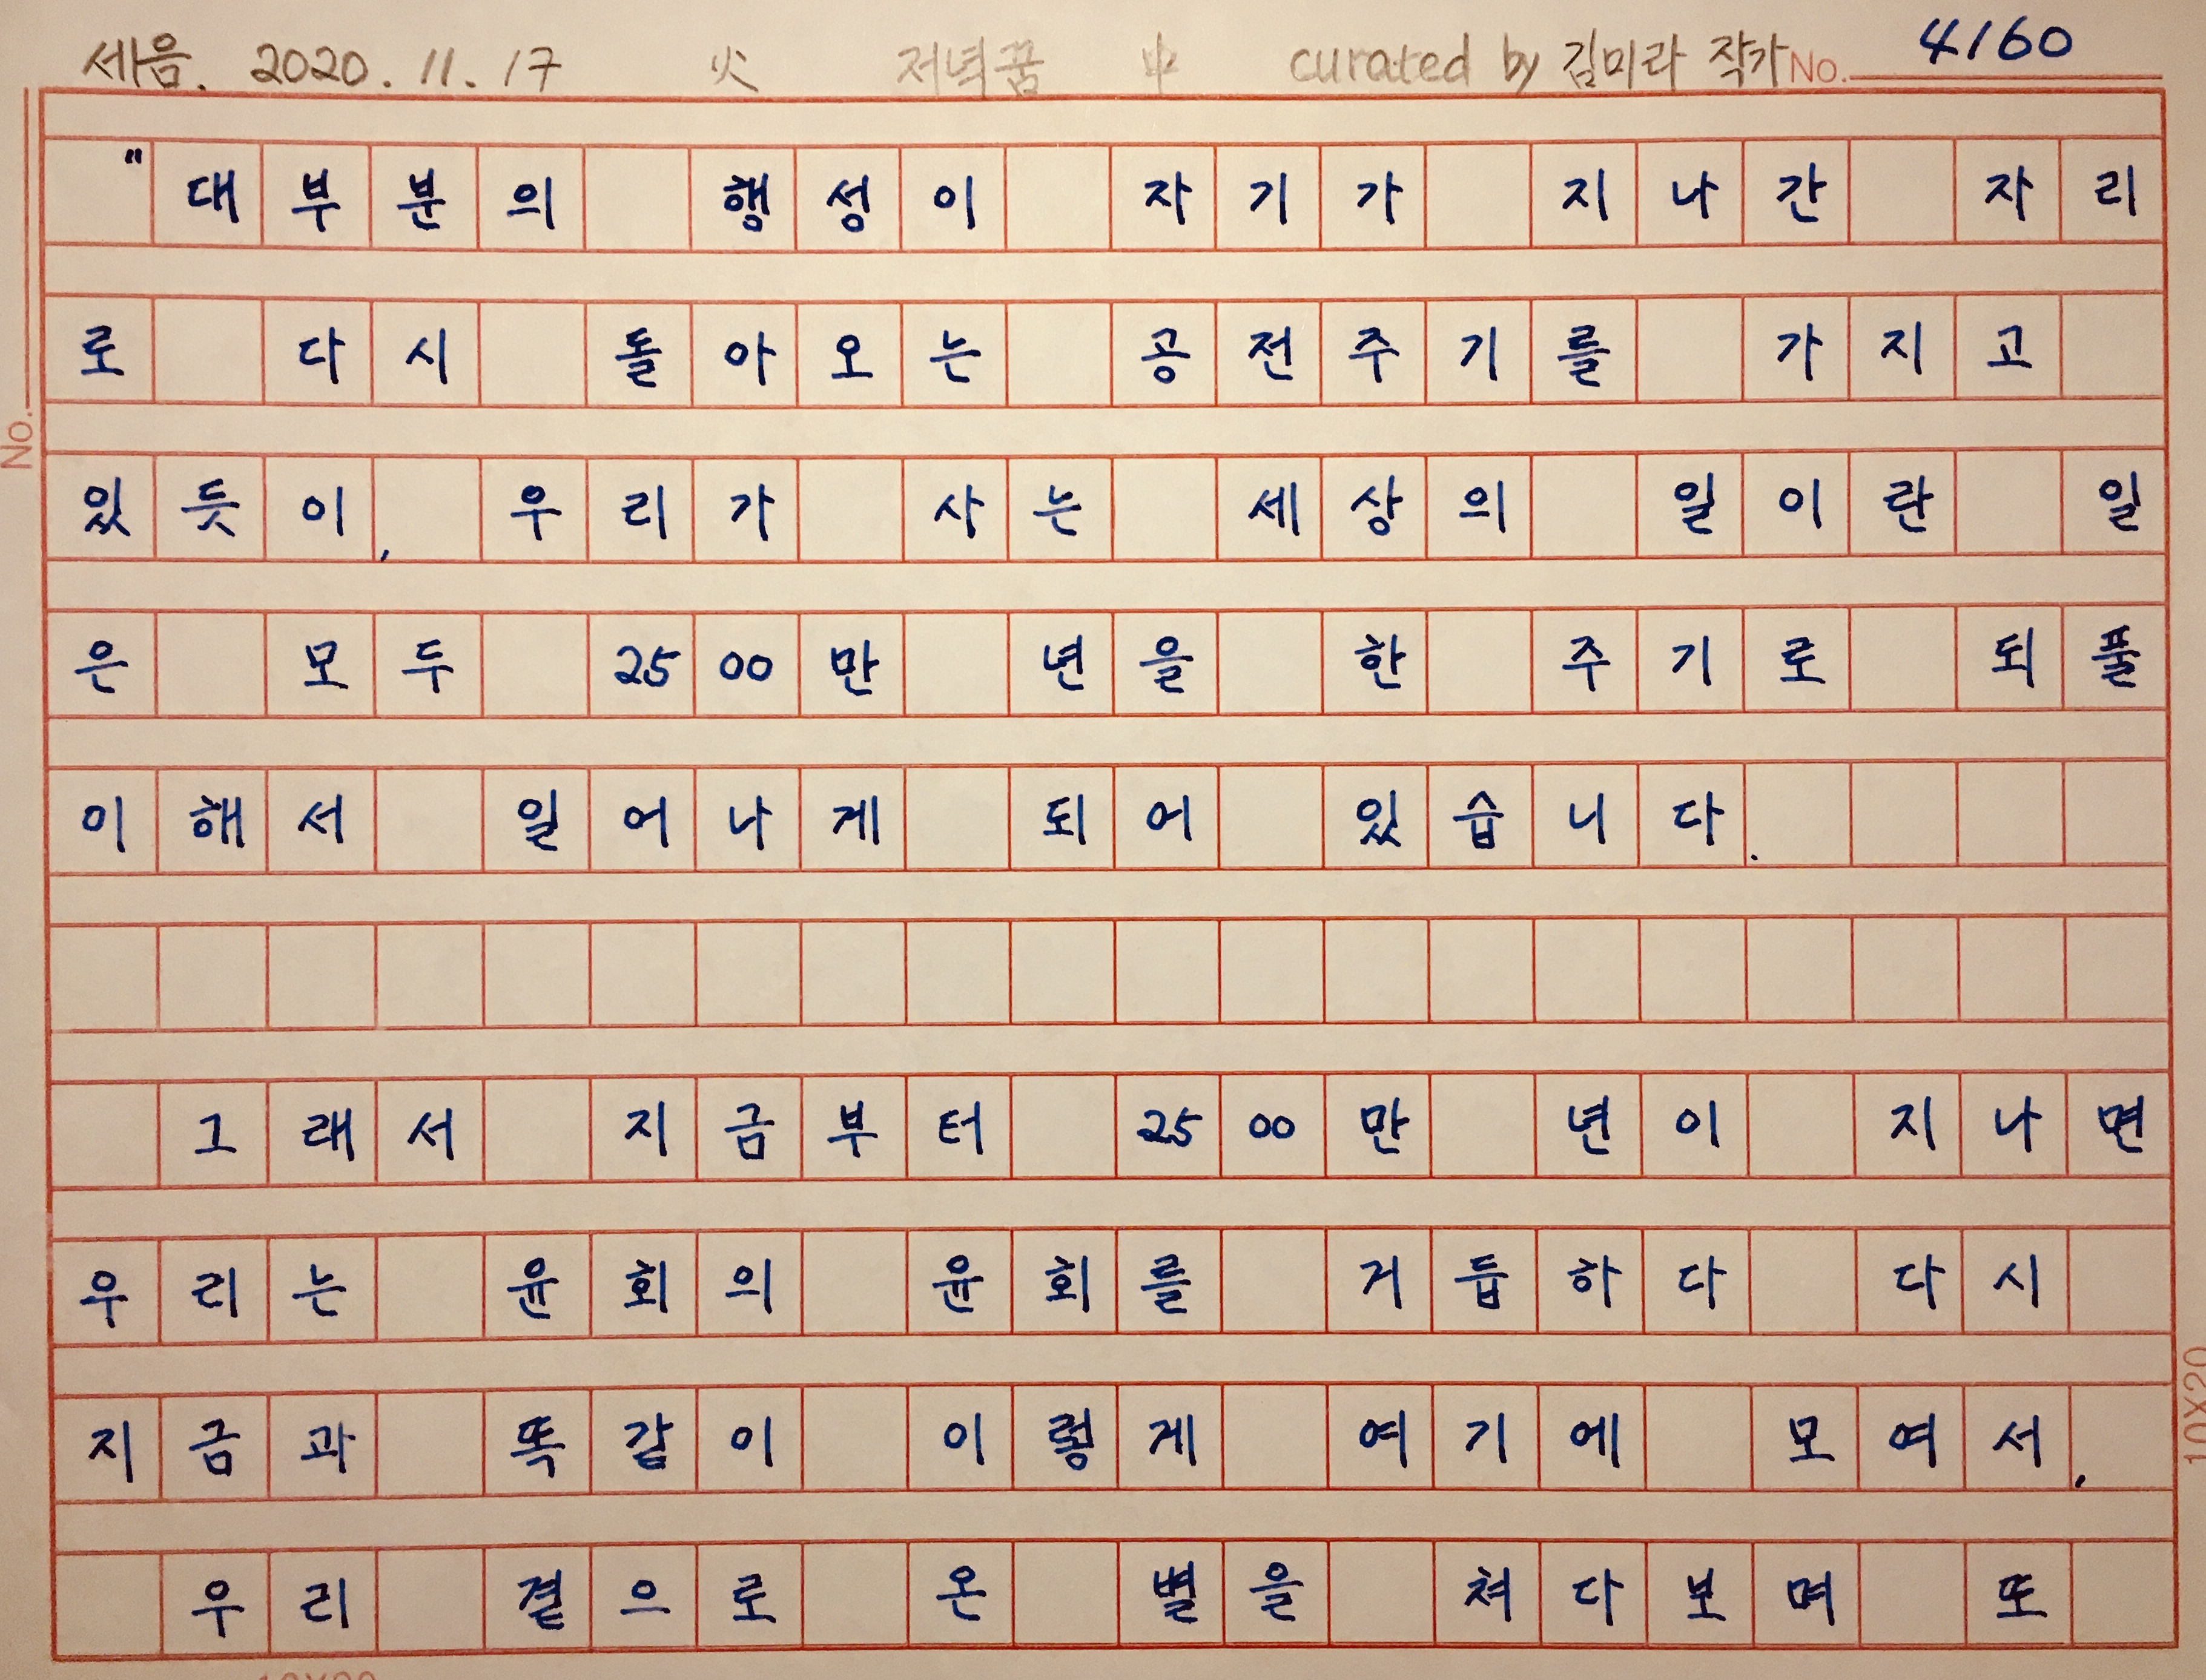 세음. 2020. 11. 17 火 저녁꿈 中 curated by 김미라 작가 No. 4160
"대부분의 행성이 자기가 지나간 자리
로 다시 돌아오는 공전주기를 가지고
No.
있듯이, 우리가 사는 세상의 일이란 일
은 모두 2500만 년을 한 주기로 되풀
이해서 일어나게 되어 있습니다.
그래서 지금부터 2500만 년이 지나면
우리는 윤회의 윤회를 거듭하다 다시
지금과 똑같이 이렇게 여기에 모여서,
10X20
우리 곁으로 온 별을 쳐다보며 또